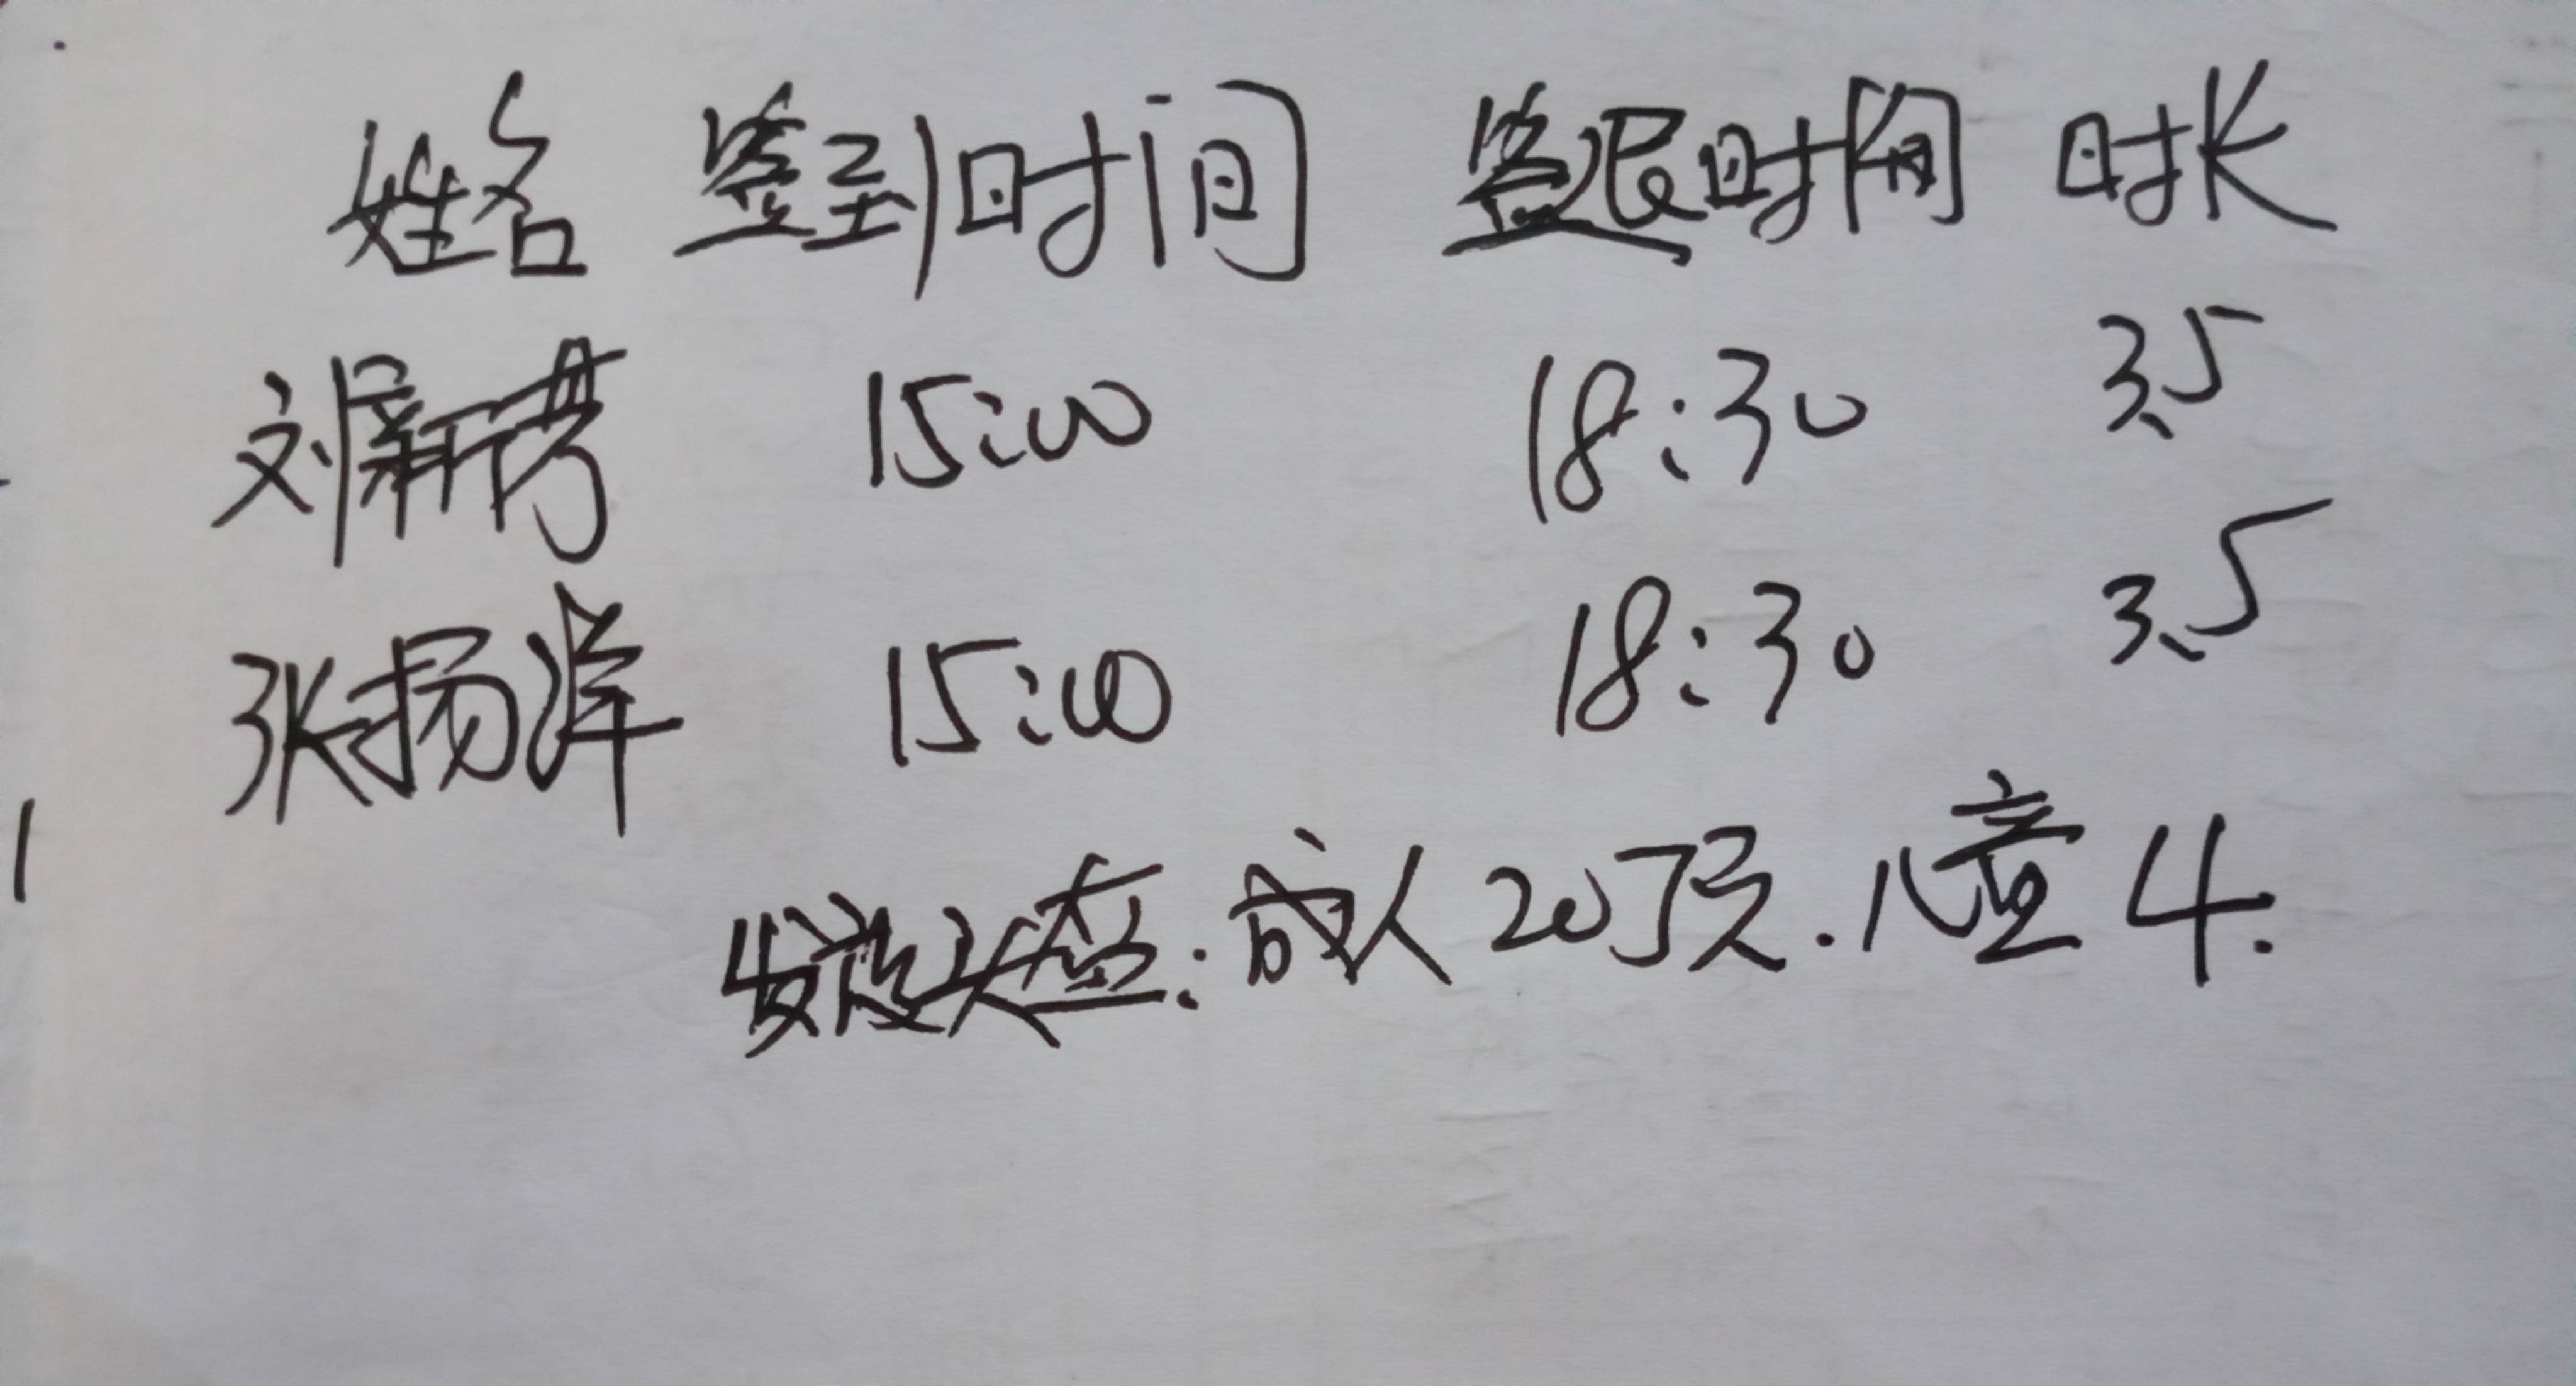 姓名 签到时间 签退时间 时长
刘新芳 15:00 18:30 3.5
张扬洋 15:00 18:30 3.5
发放头盔:成人20顶.儿童4.